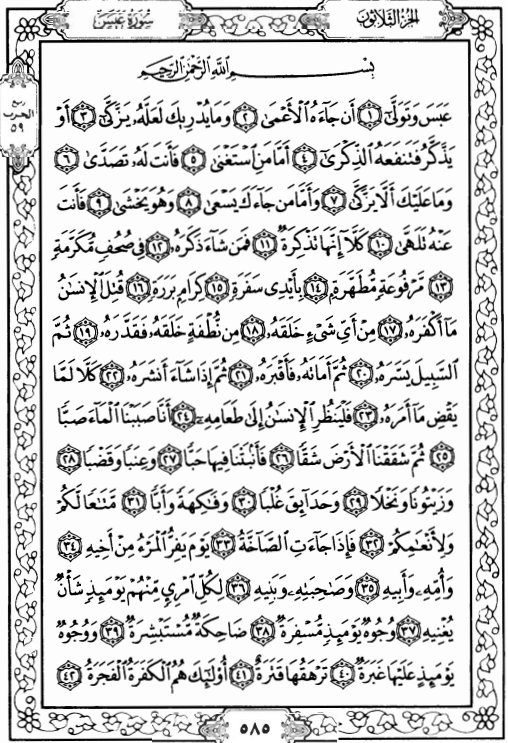 سورة عبس
الجزء الثلاثون
بِسْمِ ٱللَّهِ ٱلرَّحْمَٰنِ ٱلرَّحِيمِ
ربع
الحزب
٥٩
عَبَسَ وَتَوَلَّىٰٓ ١ أَن جَآءَهُ ٱلْأَعْمَىٰ ٢ وَمَا يُدْرِيكَ لَعَلَّهُۥ يَزَّكَّىٰٓ ٣ أَوْ
يَذَّكَّرُ فَتَنفَعَهُ ٱلذِّكْرَىٰٓ ٤ أَمَّا مَنِ ٱسْتَغْنَىٰ ٥ فَأَنتَ لَهُۥ تَصَدَّىٰ ٦
وَمَا عَلَيْكَ أَلَّا يَزَّكَّىٰ ٧ وَأَمَّا مَن جَآءَكَ يَسْعَىٰ ٨ وَهُوَ يَخْشَىٰ ٩ فَأَنتَ
عَنْهُ تَلَهَّىٰ ١٠ كَلَّآ إِنَّهَا تَذْكِرَةٌ ١١ فَمَن شَآءَ ذَكَرَهُۥ ١٢ فِى صُحُفٍ مُّكَرَّمَةٍ
١٣ مَّرْفُوعَةٍ مُّطَهَّرَةٍۭ ١٤ بِأَيْدِى سَفَرَةٍ ١٥ كِرَامٍۭ بَرَرَةٍ ١٦ قُتِلَ ٱلْإِنسَٰنُ
مَآ أَكْفَرَهُۥ ١٧ مِنْ أَىِّ شَىْءٍ خَلَقَهُۥ ١٨ مِن نُّطْفَةٍ خَلَقَهُۥ فَقَدَّرَهُۥ ١٩ ثُمَّ
ٱلسَّبِيلَ يَسَّرَهُۥ ٢٠ ثُمَّ أَمَاتَهُۥ فَأَقْبَرَهُۥ ٢١ ثُمَّ إِذَا شَآءَ أَنشَرَهُۥ ٢٢ كَلَّا لَمَّا
يَقْضِ مَآ أَمَرَهُۥ ٢٣ فَلْيَنظُرِ ٱلْإِنسَٰنُ إِلَىٰ طَعَامِهِۦٓ ٢٤ أَنَّا صَبَبْنَا ٱلْمَآءَ صَبًّا
٢٥ ثُمَّ شَقَقْنَا ٱلْأَرْضَ شَقًّا ٢٦ فَأَنۢبَتْنَا فِيهَا حَبًّا ٢٧ وَعِنَبًا وَقَضْبًا ٢٨
وَزَيْتُونًا وَنَخْلًا ٢٩ وَحَدَآئِقَ غُلْبًا ٣٠ وَفَٰكِهَةً وَأَبًّا ٣١ مَّتَٰعًا لَّكُمْ
وَلِأَنْعَٰمِكُمْ ٣٢ فَإِذَا جَآءَتِ ٱلصَّآخَّةُ ٣٣ يَوْمَ يَفِرُّ ٱلْمَرْءُ مِنْ أَخِيهِ ٣٤
وَأُمِّهِۦ وَأَبِيهِ ٣٥ وَصَٰحِبَتِهِۦ وَبَنِيهِ ٣٦ لِكُلِّ ٱمْرِئٍ مِّنْهُمْ يَوْمَئِذٍ شَأْنٌ
يُغْنِيهِ ٣٧ وُجُوهٌ يَوْمَئِذٍ مُّسْفِرَةٌ ٣٨ ضَاحِكَةٌ مُّسْتَبْشِرَةٌ ٣٩ وَوُجُوهٌ
يَوْمَئِذٍ عَلَيْهَا غَبَرَةٌ ٤٠ تَرْهَقُهَا قَتَرَةٌ ٤١ أُو۟لَٰٓئِكَ هُمُ ٱلْكَفَرَةُ ٱلْفَجَرَةُ ٤٢
٥٨٥